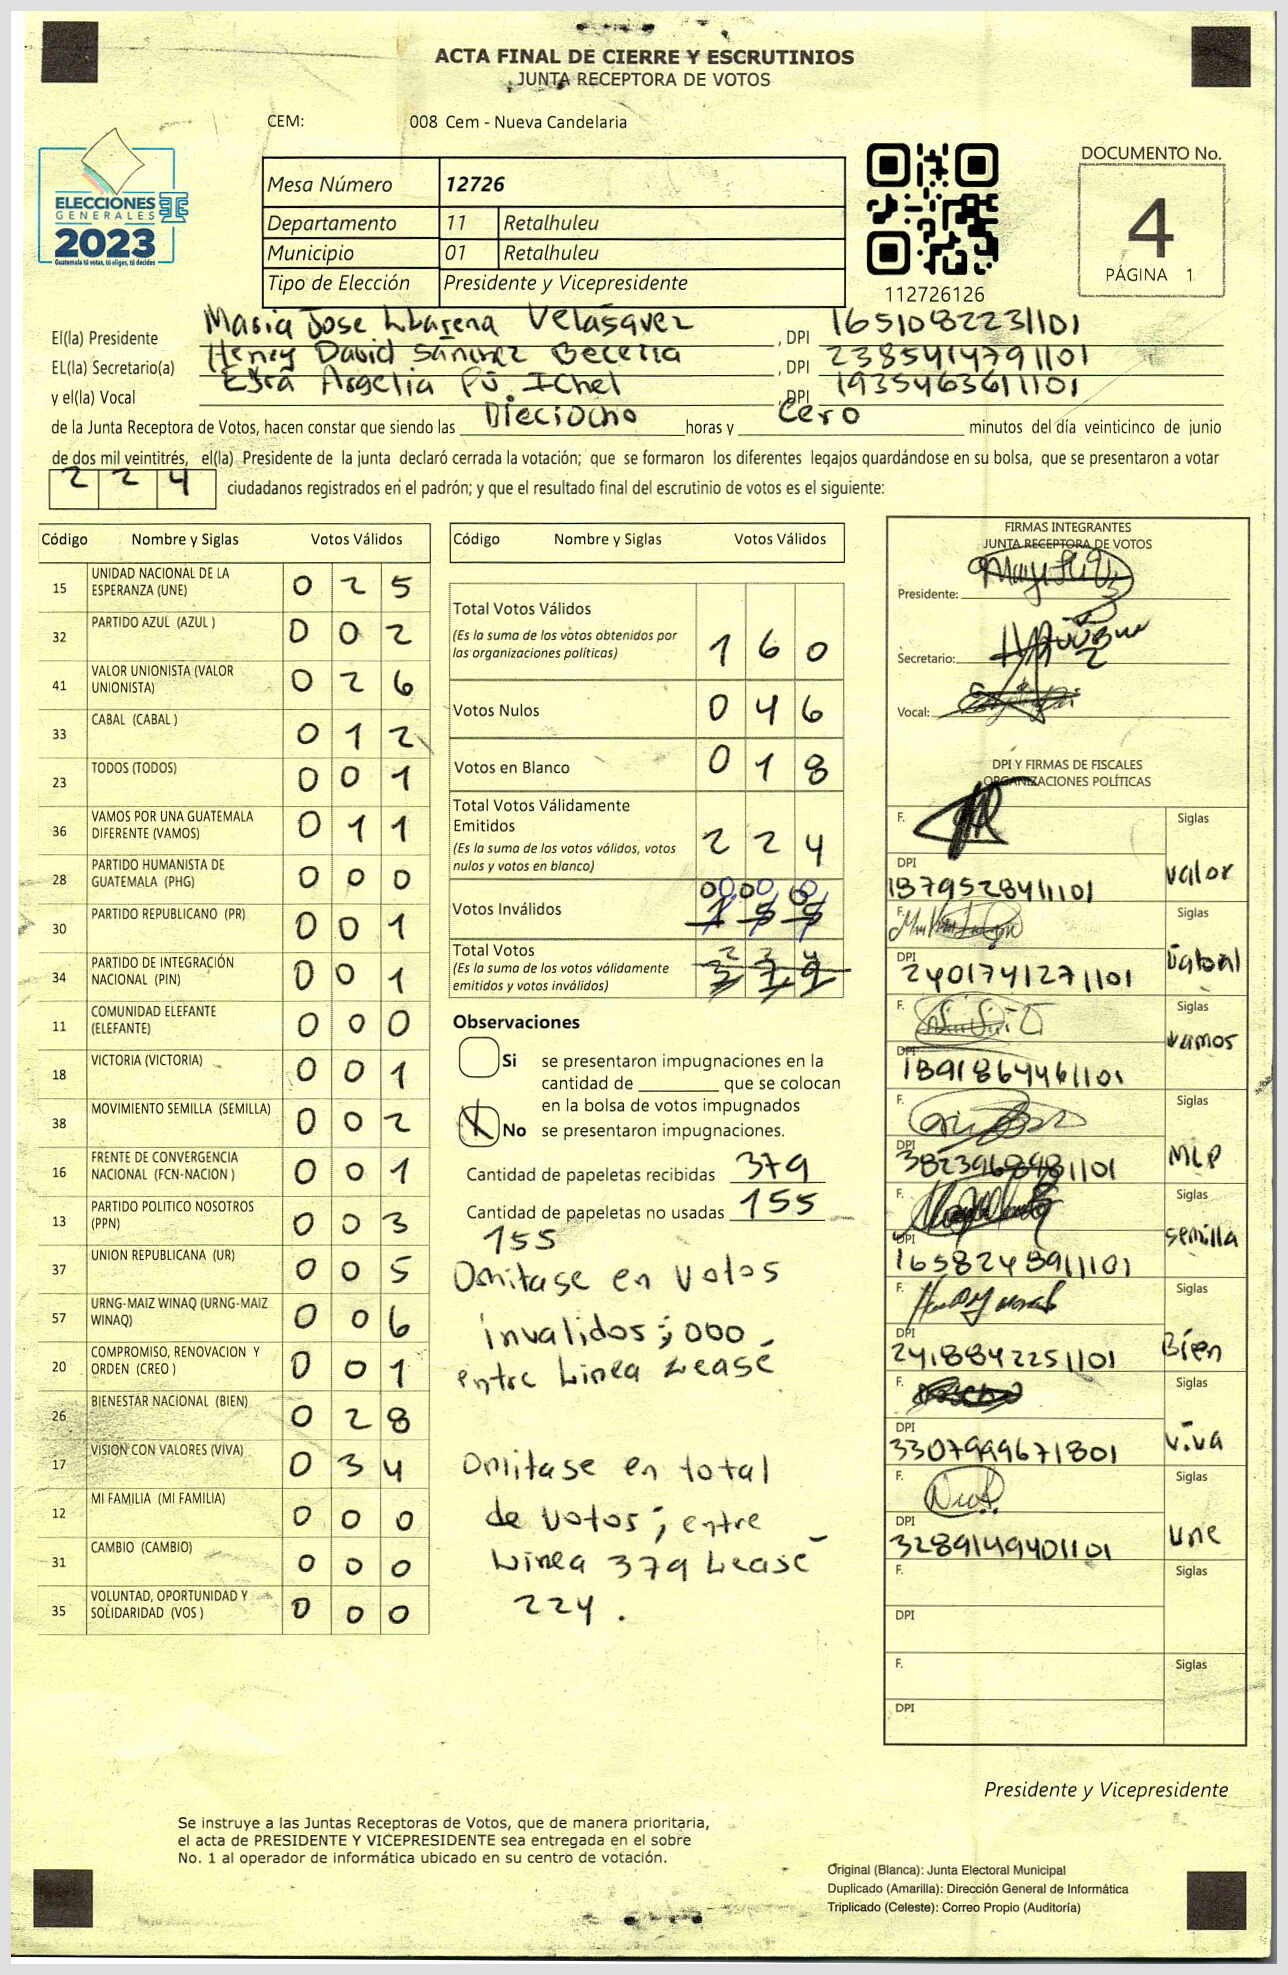 ACTA FINAL DE CIERRE Y ESCRUTINIOS
JUNTA RECEPTORA DE VOTOS
CEM: 008 Cem - Nueva Candelaria
ELECCIONES
GENERALES
2023
Guatemala tú votas, tú eliges, tú decides
Mesa Número 12726
Departamento 11 Retalhuleu
Municipio 01 Retalhuleu
Tipo de Elección Presidente y Vicepresidente
112726126
DOCUMENTO No.
4
PÁGINA 1
El(la) Presidente Maria Jose Llarena Velásquez , DPI 1651082231101
EL(la) Secretario(a) Henry David Sánchez Becerra , DPI 2385414791101
y el(la) Vocal Argelia Pú Ichel , DPI 1935463611101
de la Junta Receptora de Votos, hacen constar que siendo las Dieciocho horas y Cero minutos del día veinticinco de junio
de dos mil veintitrés, el(la) Presidente de la junta declaró cerrada la votación; que se formaron los diferentes legajos guardándose en su bolsa, que se presentaron a votar
224 ciudadanos registrados en el padrón; y que el resultado final del escrutinio de votos es el siguiente:
Código Nombre y Siglas Votos Válidos
15 UNIDAD NACIONAL DE LA ESPERANZA (UNE) 0 2 5
32 PARTIDO AZUL (AZUL ) 0 0 2
41 VALOR UNIONISTA (VALOR UNIONISTA) 0 2 6
33 CABAL (CABAL ) 0 1 2
23 TODOS (TODOS) 0 0 1
36 VAMOS POR UNA GUATEMALA DIFERENTE (VAMOS) 0 1 1
28 PARTIDO HUMANISTA DE GUATEMALA (PHG) 0 0 0
30 PARTIDO REPUBLICANO (PR) 0 0 1
34 PARTIDO DE INTEGRACIÓN NACIONAL (PIN) 0 0 1
11 COMUNIDAD ELEFANTE (ELEFANTE) 0 0 0
18 VICTORIA (VICTORIA) 0 0 1
38 MOVIMIENTO SEMILLA (SEMILLA) 0 0 2
16 FRENTE DE CONVERGENCIA NACIONAL (FCN-NACION ) 0 0 1
13 PARTIDO POLITICO NOSOTROS (PPN) 0 0 3
37 UNION REPUBLICANA (UR) 0 0 5
57 URNG-MAIZ WINAQ (URNG-MAIZ WINAQ) 0 0 6
20 COMPROMISO, RENOVACION Y ORDEN (CREO ) 0 0 1
26 BIENESTAR NACIONAL (BIEN) 0 2 8
17 VISION CON VALORES (VIVA) 0 3 4
12 MI FAMILIA (MI FAMILIA) 0 0 0
31 CAMBIO (CAMBIO) 0 0 0
35 VOLUNTAD, OPORTUNIDAD Y SOLIDARIDAD (VOS ) 0 0 0
Código Nombre y Siglas Votos Válidos
Total Votos Válidos
(Es la suma de los votos obtenidos por
las organizaciones políticas) 1 6 0
Votos Nulos 0 4 6
Votos en Blanco 0 1 8
Total Votos Válidamente
Emitidos
(Es la suma de los votos válidos, votos
nulos y votos en blanco) 2 2 4
Votos Inválidos 0 0 0
1 5 5
Total Votos 2 2 4
(Es la suma de los votos válidamente
emitidos y votos inválidos) 3 7 9
Observaciones
Si se presentaron impugnaciones en la
cantidad de ________ que se colocan
en la bolsa de votos impugnados
X No se presentaron impugnaciones.
Cantidad de papeletas recibidas 379
Cantidad de papeletas no usadas 155
155
Omitase en votos
invalidos; 000
entre Linea Leasé
Omitase en total
de votos; entre
Linea 379 Leasé
224.
FIRMAS INTEGRANTES
JUNTA RECEPTORA DE VOTOS
Presidente:
Secretario:
Vocal:
DPI Y FIRMAS DE FISCALES
ORGANIZACIONES POLÍTICAS
F. Siglas
DPI 1879528411101 valor
F. Siglas
DPI 2401741271101
F. Siglas
DPI 1891864461101 vamos
F. Siglas
DPI 3823968981101 MLP
F. Siglas
DPI 1658248911101 semilla
F. Siglas
DPI 2418842251101 Bien
F. Siglas
DPI 3307999671801 viva
F. Siglas
DPI 3289149401101 une
F. Siglas
DPI
F. Siglas
DPI
Presidente y Vicepresidente
Se instruye a las Juntas Receptoras de Votos, que de manera prioritaria,
el acta de PRESIDENTE Y VICEPRESIDENTE sea entregada en el sobre
No. 1 al operador de informática ubicado en su centro de votación.
Original (Blanca): Junta Electoral Municipal
Duplicado (Amarilla): Dirección General de Informática
Triplicado (Celeste): Correo Propio (Auditoría)